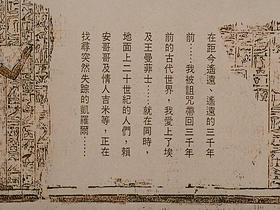 在距今遙遠、遙遠的三千年
前⋯⋯我被詛咒帶回三千年
前的古代世界，我愛上了埃
及王曼菲士⋯⋯就在同時，
地面上二十世紀的人們，賴
安哥哥及情人吉米等，正在
找尋突然失踪的凱羅爾⋯⋯